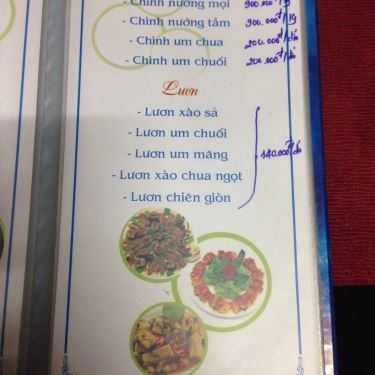 - Chình nướng mọi 900.000đ/kg
- Chình nướng tảm 900.000đ/kg
- Chình um chua 200.000đ/đĩa
- Chình um chuối 200.000đ/đĩa
Lươn
- Lươn xào sả
- Lươn um chuối
- Lươn um măng 140.000đ/đĩa
- Lươn xào chua ngọt
- Lươn chiên giòn